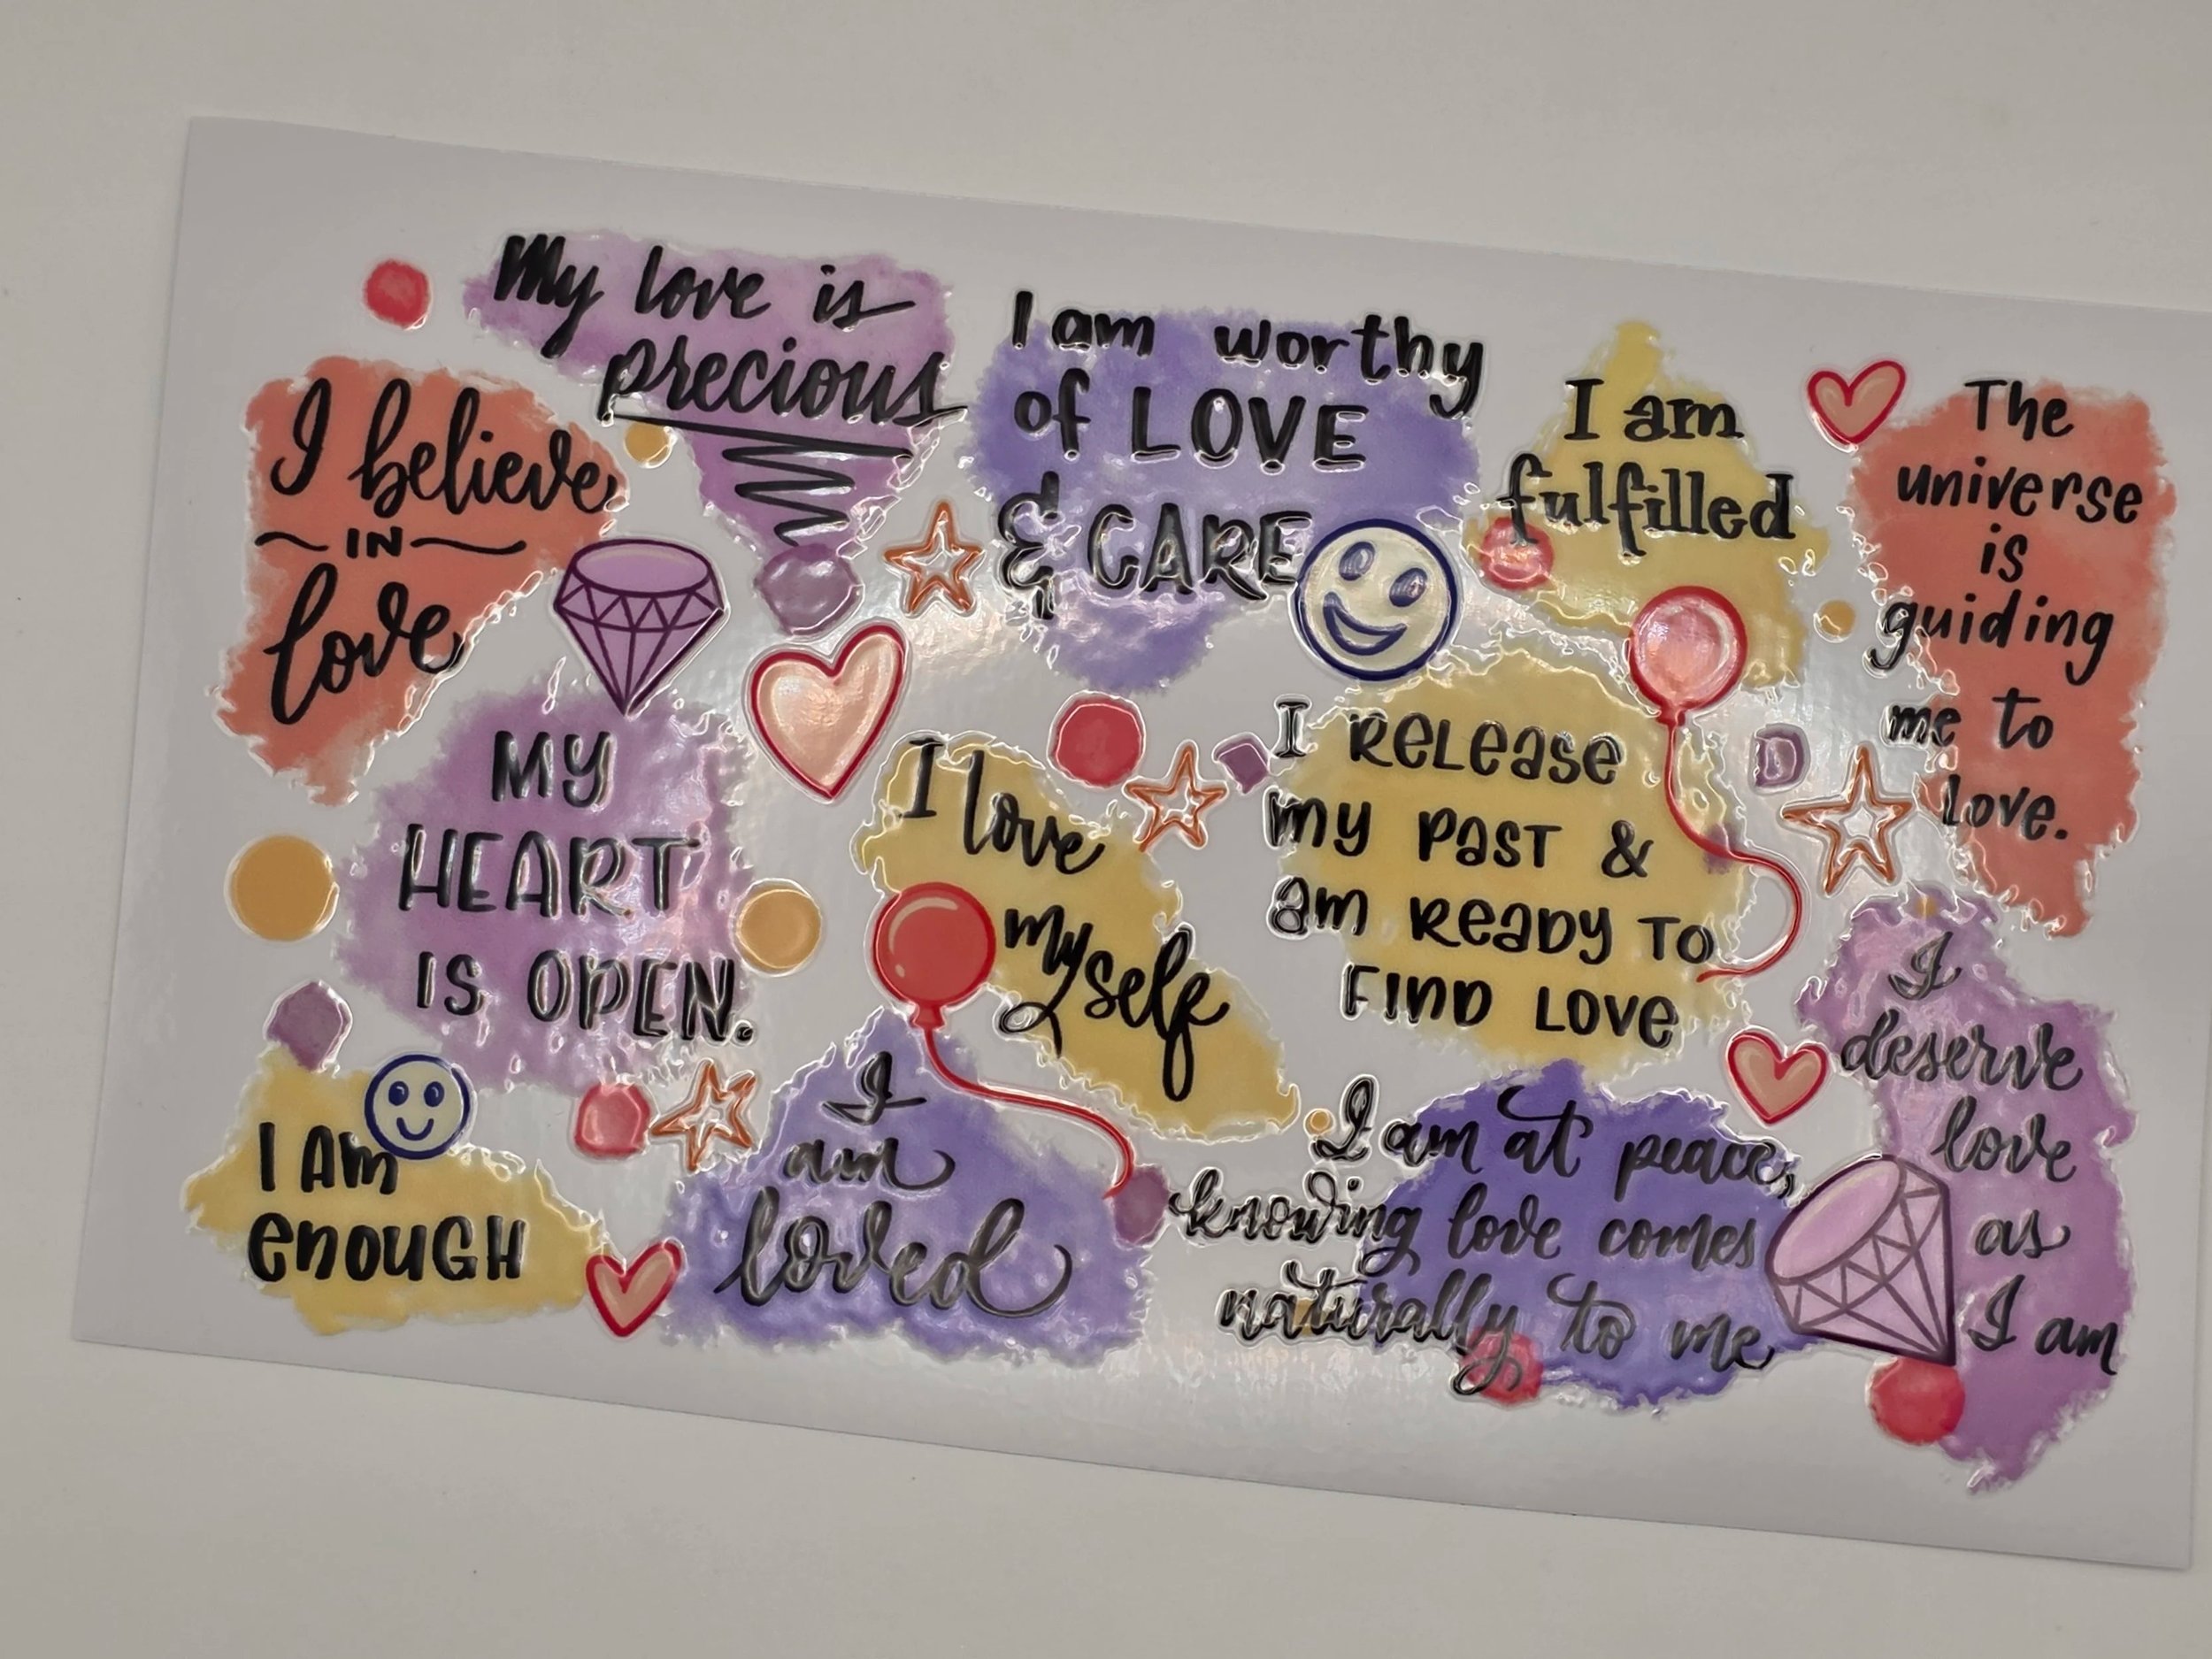 My love is
precious
I believe
IN
love
I am worthy
of LOVE
& CARE
I am
fulfilled
The
universe
is
guiding
me to
love.
MY
HEART
IS OPEN.
I love
myself
I Release
my past &
am Ready to
Find Love
I Am
enough
I
am
loved
I am at peace,
knowing love comes
naturally to me
I
deserve
love
as
I am